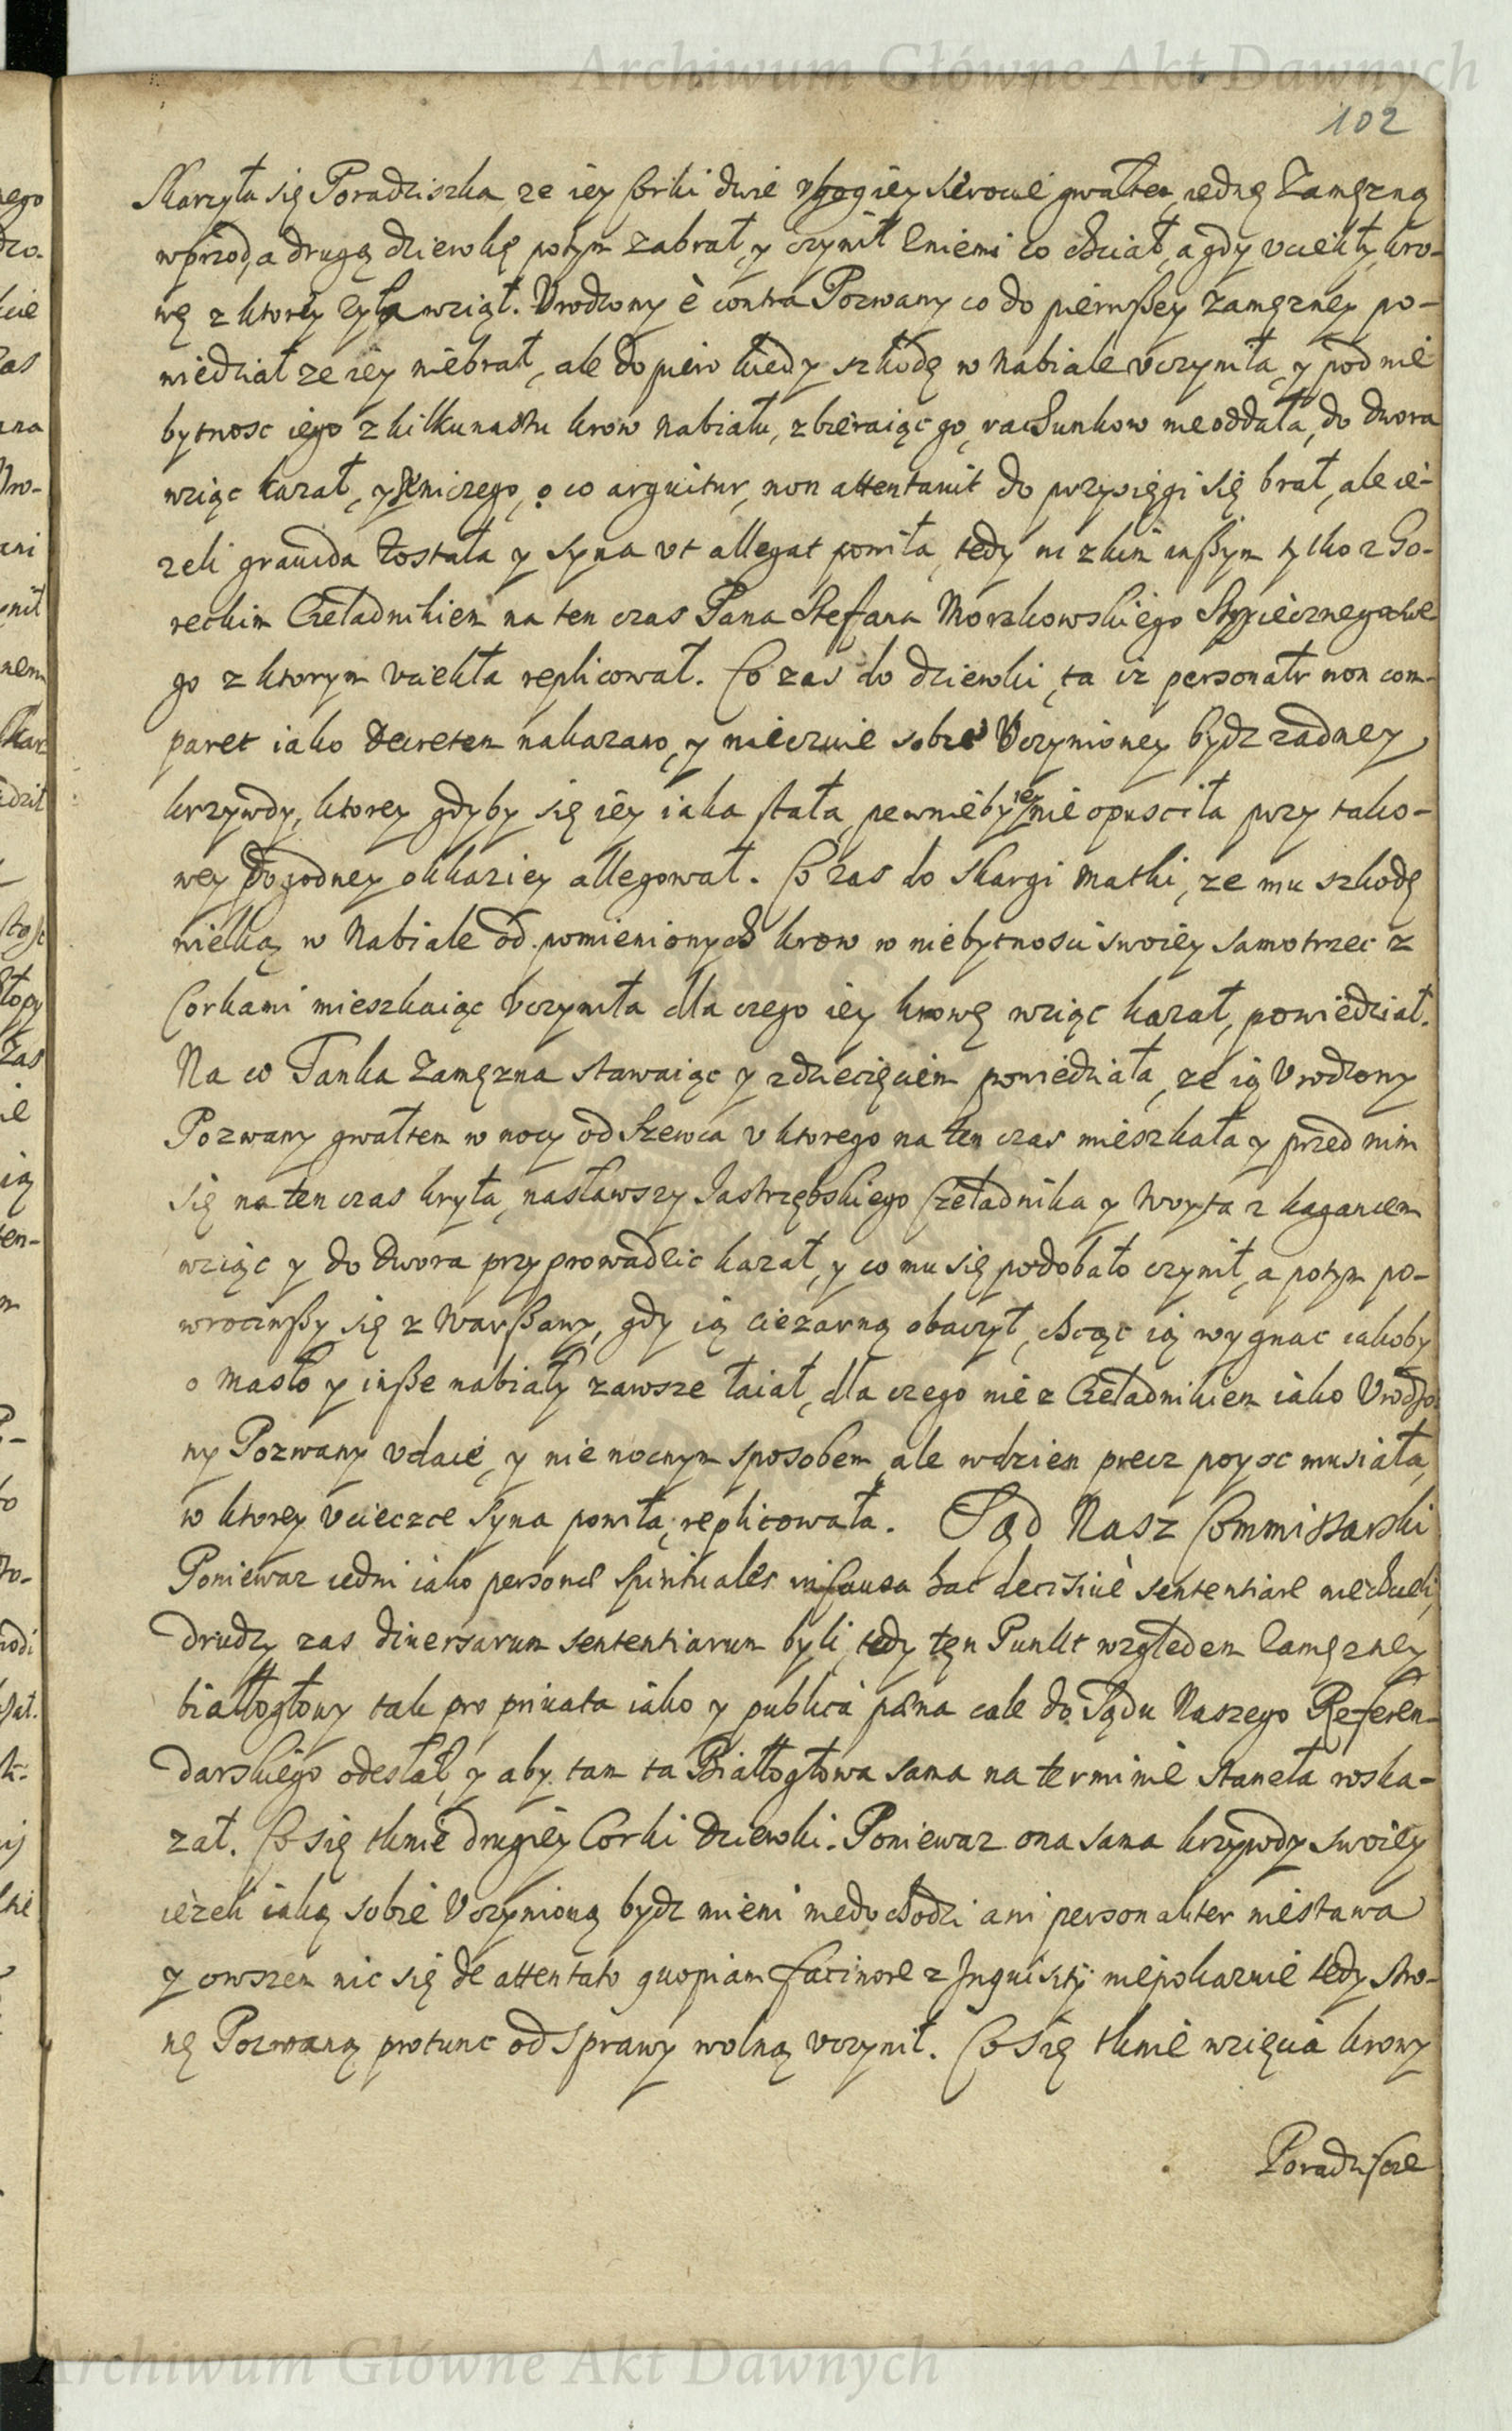 Archiwum Główne Akt Dawnych
102
Skarzyła się Poradziszka, ze iey Corki dwie vbogiey sierocie gwałtem, iednę Zamęzną
wprzod, a drugą dziewkę potym zabrał, y czynił z niemi co chciał, a gdy vciekły, kro-
wę z ktorey zyła wziął. Vrodzony è contra Pozwany co do pierwßey zamęzney po-
wiedział ze iey niebrał, ale dopiero kiedy szkodę w nabiale vczyniła, y pod nie
bytnosc iego z kilkunastu krow nabiału, zbieraiąc go, rachunkow nieoddała, do dwora
wziąc kazał, y niczego, o co arguitur, non attentavit do przysięgi się brał, ale ie-
zeli gravida została y syna vt allegat powiła, tedy ni z kim inßym tylko z Go-
reckim Czeladnikiem na ten czas Pana Stefana Morzkowskiego
go z ktorym vciekła replicował. Co zas do dziewki, ta iz personalr non com-
paret iako decretem nakazano, y nieczuie sobie Vczynioney bydz zadney
krzywdy, ktorey gdyby się iey iaka stała, pewnieby iey nie opusciła przy tako-
wey pogodney okkaziey allegował. Co zas do skargi Matki, ze mu szkodę
wielką w Nabiale od pomienionych krow w niebytnosci swoiey samotrzec z
Corkami mieszkaiąc Vczyniła dla czego iey krowę wziąc kazał, powiedział.
Na co Janka Zamęzna stawaiąc y z dziecięciem powiedziała, ze ią Vrodzony
Pozwany gwałtem w nocy od Szewca v ktorego na ten czas mieszkała y przed nim
się na ten czas kryła, nasławszy Jastrzębskiego Czeladnika y Woyta z kagancem
wziąc y do Dwora przyprowadzic kazał, y co mu się podobało czynił, a potym po-
wrociwßy się z Warßawy, gdy ią ciezarną obaczył, chcąc ią wygnac iakoby
o masło y inße nabiały zawsze łaiał, dla czego nie z Czeladnikiem iako Vrodzo
ny Pozwany vdaie, y nie nocnym sposobem, ale w dzien precz poysc musiała,
w ktorey vcieczce Syna powiła, replicowała. Sąd Nasz Commissarski
Poniewaz iedni iako personæ Spirituales in causa hac decisivè sententiare niechcieli,
drudzy zas diversarum sententiarum byli, tedy ten Punkt względem Zamęzney
białłogłowy tak pro privata iako y publica pæna cale do Sądu Naszego Referen-
darskiego odesłał, y aby tam ta Białłogłowa sama na terminie stanęła roska-
zał. Co się tknie drugiey Corki Dziewki. Poniewaz ona sama krzywdy swoiey
iezeli iaką sobie Vczynioną bydz mieni niedochodzi ani personaliter niestawa
y owszem nic się de attentato quopiam facinore z Inquisitij niepokazuie tedy stro-
nę Pozwaną protunc od sprawy wolną vczynił. Co się tknie wzięcia krowy
Poradziscze
Archiwum Główne Akt Dawnych